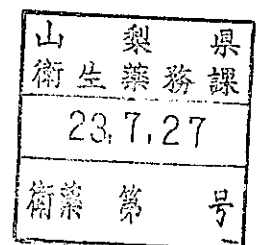 山梨県
衛生薬務課
23.7.27
衛薬第 号